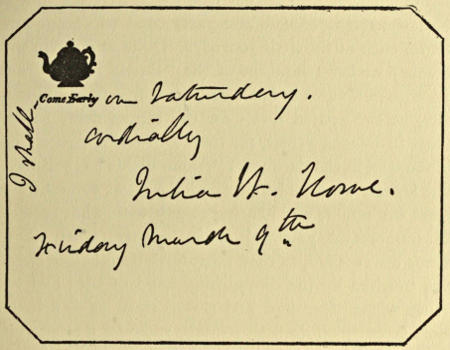 I shall
Come Early on Saturday.
cordially
Julia W. Howe.
Friday March 9th